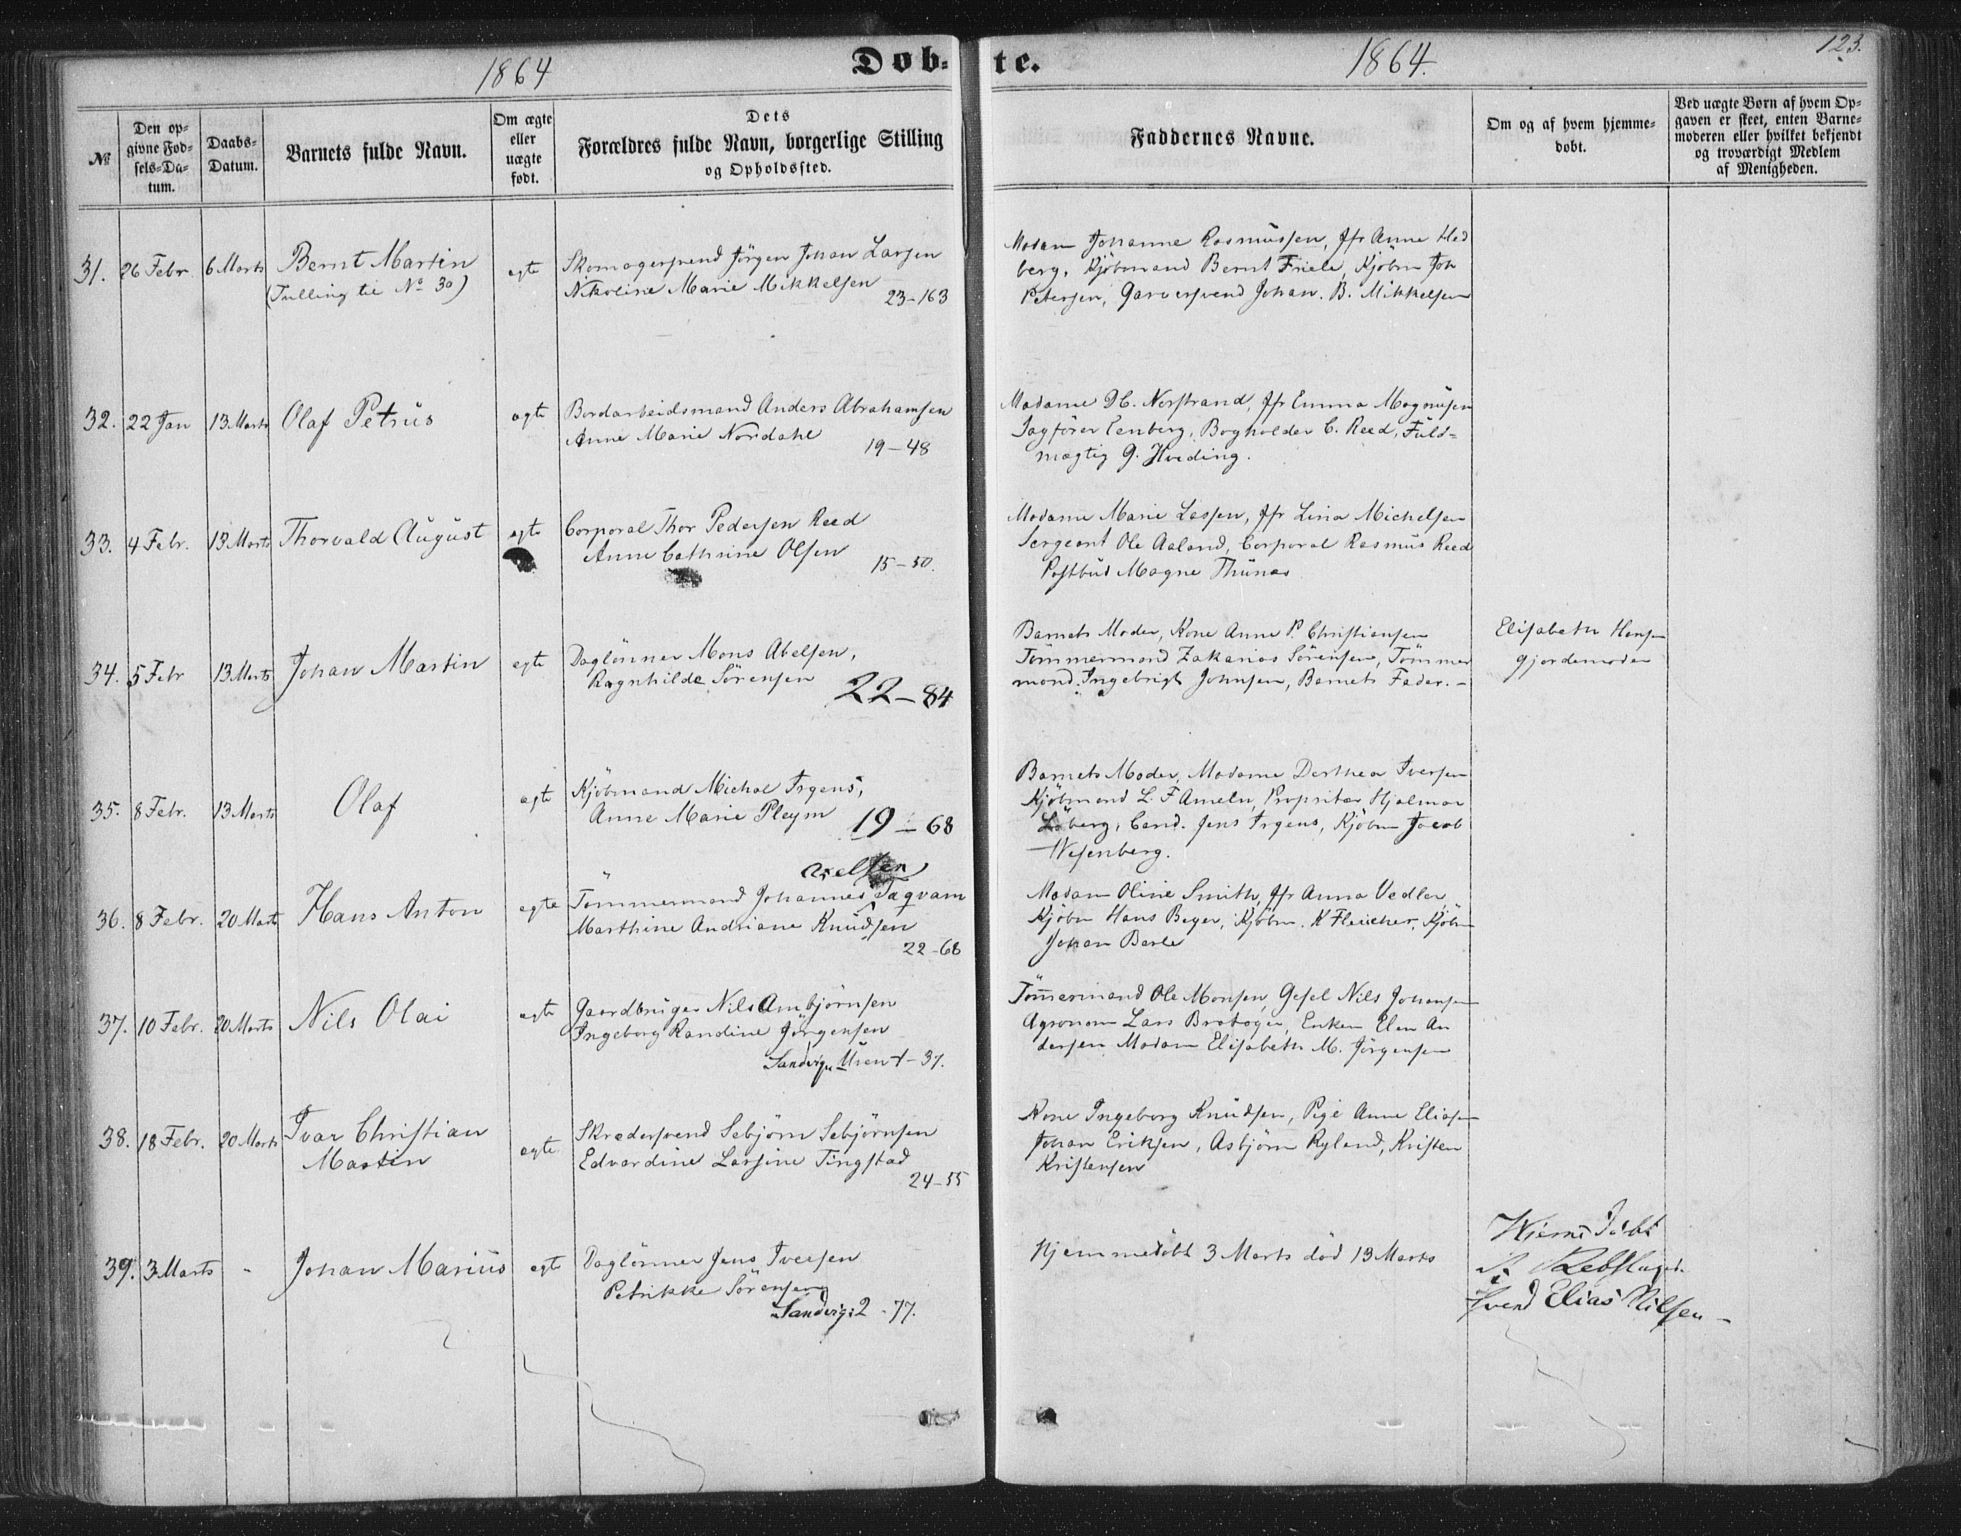 1864
Döb-
te.
1864.
123.
№
Den op-
givne Fød-
sels-Da-
tum.
Daabs-
Datum.
Barnets fulde Navn.
Om ægte
eller
uægte
født.
Dets
Forældres fulde Navn, borgerlige Stilling
og Opholdssted.
Faddernes Navne.
Om og af hvem hjemme-
døbt.
Ved uægte Børn af hvem Op-
gaven er skeet, enten Barne-
moderen eller hvilket bekjendt
og troværdigt Medlem
af Menigheden.
31. 26 Febr. 6 Marts Bernt Martin
(Tvilling til No 30)
egte
Skomagersvend Jörgen Johan Larsen
Nikoline Marie Mikkelsen
23-163
Madam Johanne Rasmussen, Jfr Anne Hed
berg, Kjöbmand Bernt Friele, Kjöbm Joh
Petersen, Garversvend Johan. B. Mikkelsen
32. 22 Jan 13 Marts Olaf Petrus
egte
Bordarbeidsmand Anders Abrahamsen
Anne Marie Nordahl
19-48
Madame Nerstrand, Jfr Emma Magnusen
Sagförer Eenberg, Bogholder C. Reed, Fuld-
mægtig G. Hveding.
33. 4 Febr. 13 Marts Thorvald August
egte
Corporal Thor Pedersen Reed
Anne Cathrine Olsen
15-50.
Madame Marie Lassen, Jfr Lina Michelsen
Sergeant Ole Aaland, Corporal Rasmus Reed
Postbud Magne Thunes
34. 5 Febr 13 Marts Johan Martin
egte
Daglönner Mons Abelsen,
Ragnhilde Sörensen
22-84
Barnets Moder, Kone Anne P. Christiansen
Tömmermand Zakarias Sörensen, Tömmer
mand Ingebrigt Johnsen, Barnets Fader. -
Elisabeth Hansen
gjordemoder
35. 8 Febr. 13 Marts Olaf
egte
Kjöbmand Michal Irgens,
Anne Marie Pleym
19-68
Barnets Moder, Madame Dorthea Iversen
Kjöbmand L. F Ameln, Propritær Hjalmar
Löberg, Cand. Jens Irgens, Kjöbm Jacob
Wesenberg.
36. 8 Febr. 20 Marts Hans Anton
egte
Axelsen
Tömmermand Johannes Dagvam
Marthine Andriane Knudsen
22-68
Madam Oline Smith, Jfr Anna Vedler,
Kjöbm Hans Beyer, Kjöbm. K Fleischer, Kjöbm
Johan Barle
37. 10 Febr. 20 Marts Nils Olai
egte
Gaardbruger Nils Ambjörnsen
Ingeborg Randine Jörgensen
Sandvign 37.
Tömermand Ole Monsen, Gesel Nils Johansen
Agronom Lars Bratager, Enken Elen An
dersen Madam Elisabeth M. Jörgensen
38. 18 Febr. 20 Marts Ivar Christian
Martin
egte
Skrædersvend Sebjörn Sebjörnsen
Edvardine Larsine Tingstad
24-55
Kone Ingeborg Knudsen, Pige Anne Eliasen
Johan Eriksen, Asbjörn Ryland, Kristen
Kristensen
39. 3 Marts - Johan Marius
egte
Daglönner Jens Iversen
Petrikke Sörensen
Sandvig: 2-77.
Hjemmedöbt 3 Marts död 13 Marts
Hjemedöbt
Rebslager
Svend Elias Nilsen